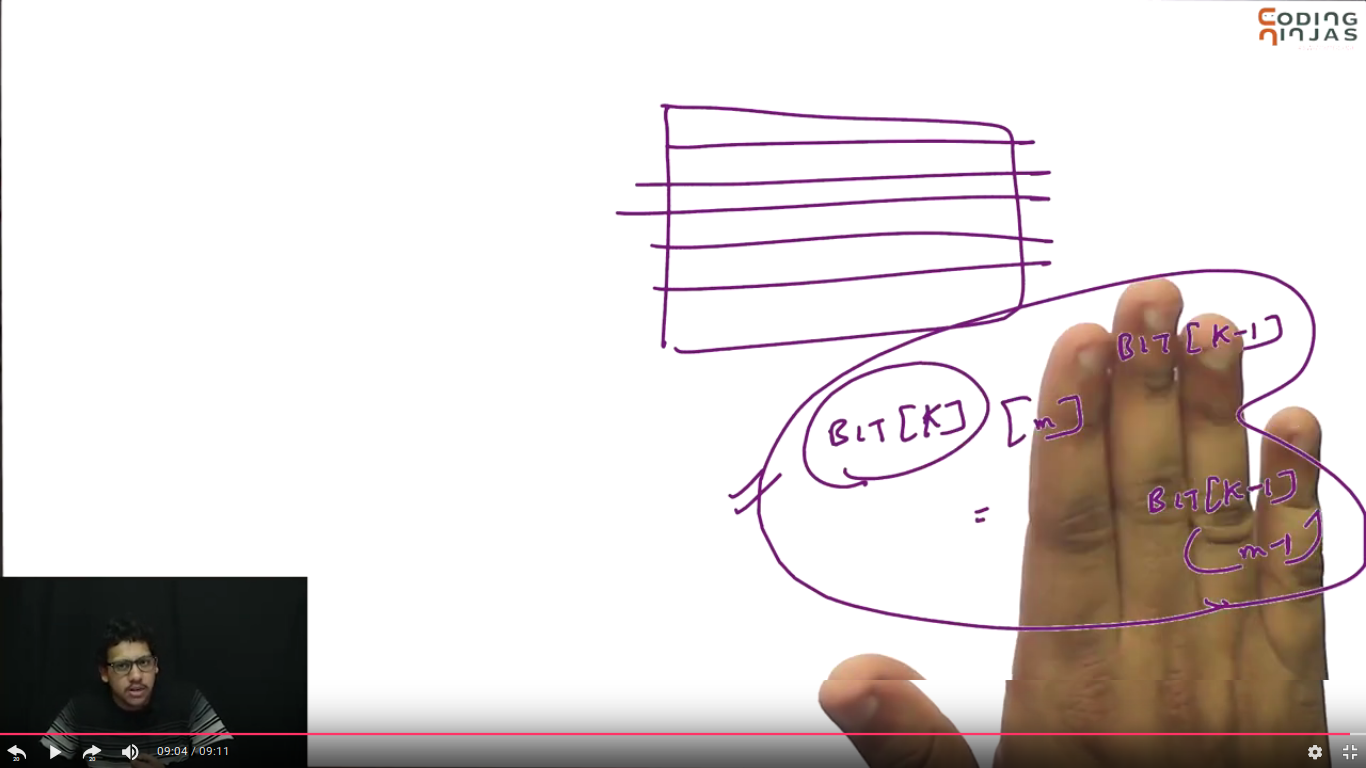 CODING
NINJAS
BIT [K-1]
BIT [K] [m]
BIT [K-1]
=
(m-1)
09:04 / 09:11
20
20